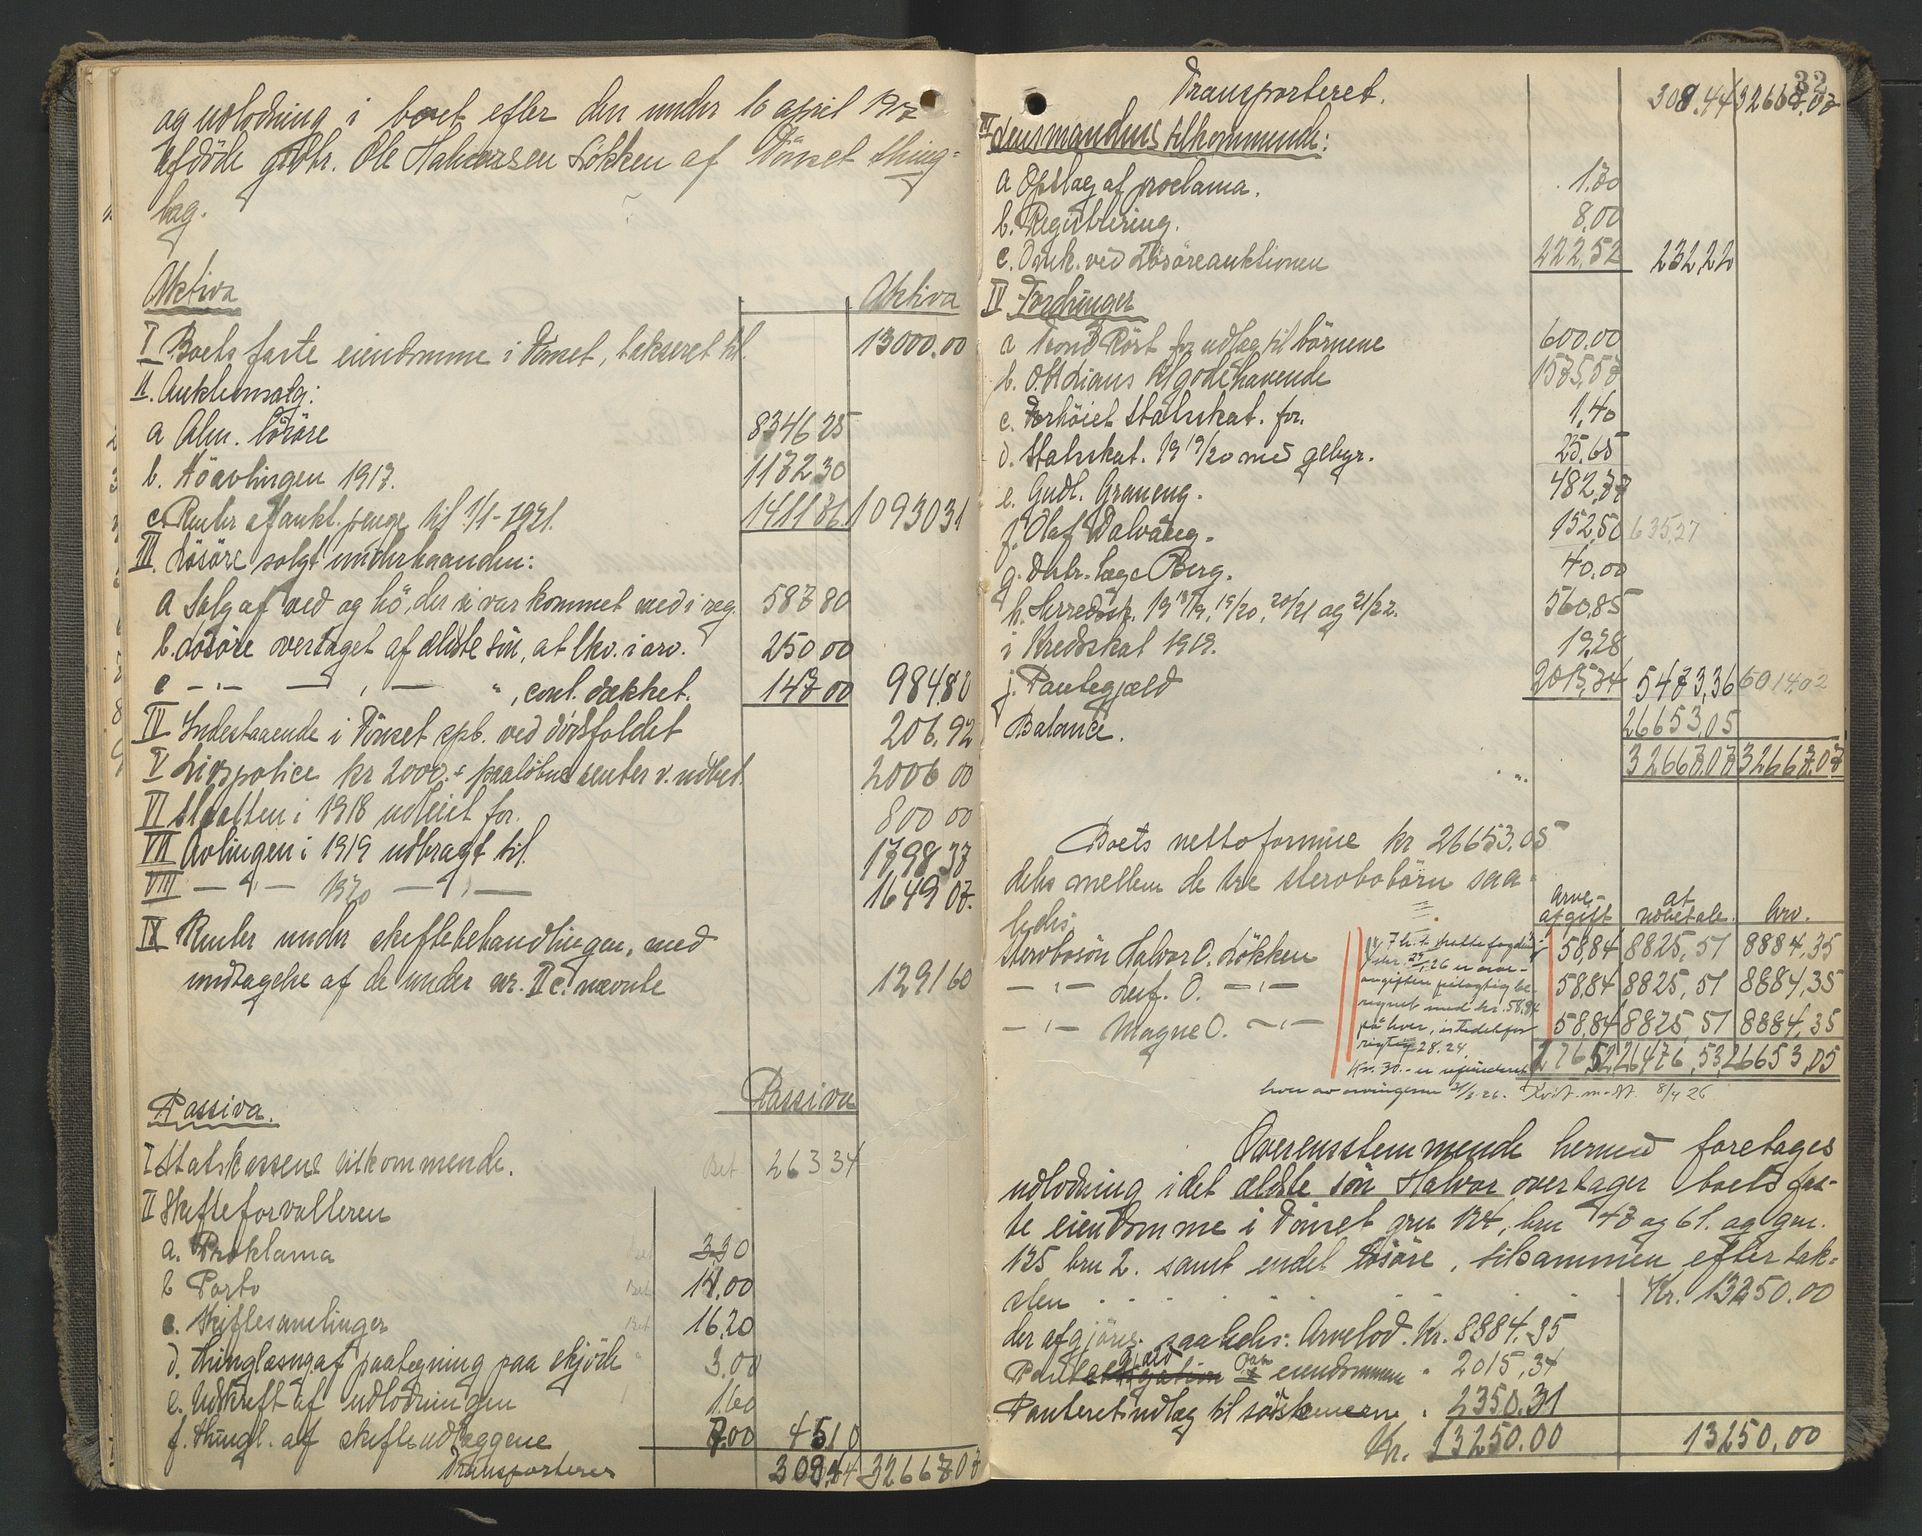 og udlodning i boet efter den under 16 april 1917
afdöde gdbr. Ole Halvorsen Lökken af Tönset thing-
lag.
Aktiva
Aktiva
I Boets faste eiendomme i Tönset, takseret til 13000.00
II. Auktionsalg:
a Alm. lösöre 8346 25
b. Höavlingen 1917. 1172 30
c. Renter af aukt. penge til 1/1-1921. 1411 76 10930 31
III. Lösöre solgt underhaanden:
a Salg af ved og hö, der ei var kommet med i reg. 587 80
b. Lösöre overtaget af ældste sön, at lkv. i arv. 250 00
c -"- — " — " , cont. dækket. 147 00 984.80
IV Indestaaende i Tönset spb. ved dödsfaldet 206.92
V Livspolice kr 2000.- + paalöbne renter v. udbet. 2006 00
VI Slaatten i 1918 udleiet for. 800 00
VII Avlingen i 1919 udbragt til. 1798 37
VIII — " — 1920 — " — 1649 07.
IX Renter under skiftebehandlingen, med
undtagelse af de under nr. II c. nævnte 1291 60
Passiva.
Passiva
I Statskassens tilkommende. Bet 263 34
II Skifteforvalteren
a. Proklama 3.30
b Porto Bet 14.00
c. Skiftesamlinger Bet 16.20
d. thinglæsn. af paategning paa skjöde " 3.00
e. Udskrift af udlodningen 1.60
f. thingl. af skifteudlæggene 7.00 45 10
Transporteres 308.44 32667 07
32
Transporteret. 308.44 32667.07
III Lensmandens tilkommende:
a Opslag af proclama. 1.70
b. Registrering. 8.00
c. Omk. ved Lösöreauktionen 222,52 232,22
IV Fordringer
a Trond Röst for udlæg til börnene 600.00
b. O. H. Lians tilgodehavende 1575,57
c. Forhöiet statsskat. for. 1,40
d. Statsskat. 19 19/20 med gebyr. 25,65
e. Gudl. Graneng. 482,77
f. Olaf Dalvang. 152,50 635,27
g. Distr. læge Berg. 40.00
h. Herredsk. 19 18/19, 19/20, 20/21 og 21/22. 560,85
i Kredsskat 1919. 19,28
j. Pantegjæld 2015,34 5473,36 6014.02
Balance. 26653,05
32667,07 32667,07
Boets nettoformue kr 26653.05
deles mellem de tre sterobobörn saa-
ledes
arve-
afgift at
udbetale. Arv.
Sterbosön Halvor O. Lökken 58,84 8825,51 8884,35
— " — Leif. O. — " — 58,84 8825,51 8884,35
— " — Magne O. — " — 58,84 8825,51 8884,35
176,52 26476,53 26653,05
avgiften feilagtig be-
regnet med kr. 58.84
på hver, istedetfor
rigtig 28.24.
Kr. 30.- er refunderet
hver av arvingerne Kvit. m. 8/4 26
Overensstemmende hermed foretages
udlodning idet ældste sön Halvor overtager boets fas-
te eiendomme i Tönset gnr 124, bnr 47 og 61. og gnr.
125 bnr 2. samt endel lösöre, tilsammen efter tak-
sten Kr. 13250.00
der afgjöres saaledes: Arvelod. Kr. 8884,35
Pantegjæld paa eiendommene " 2015,34
Panteret udlæg til söskenerne " 2350.31
Kr. 13250.00 13250,00